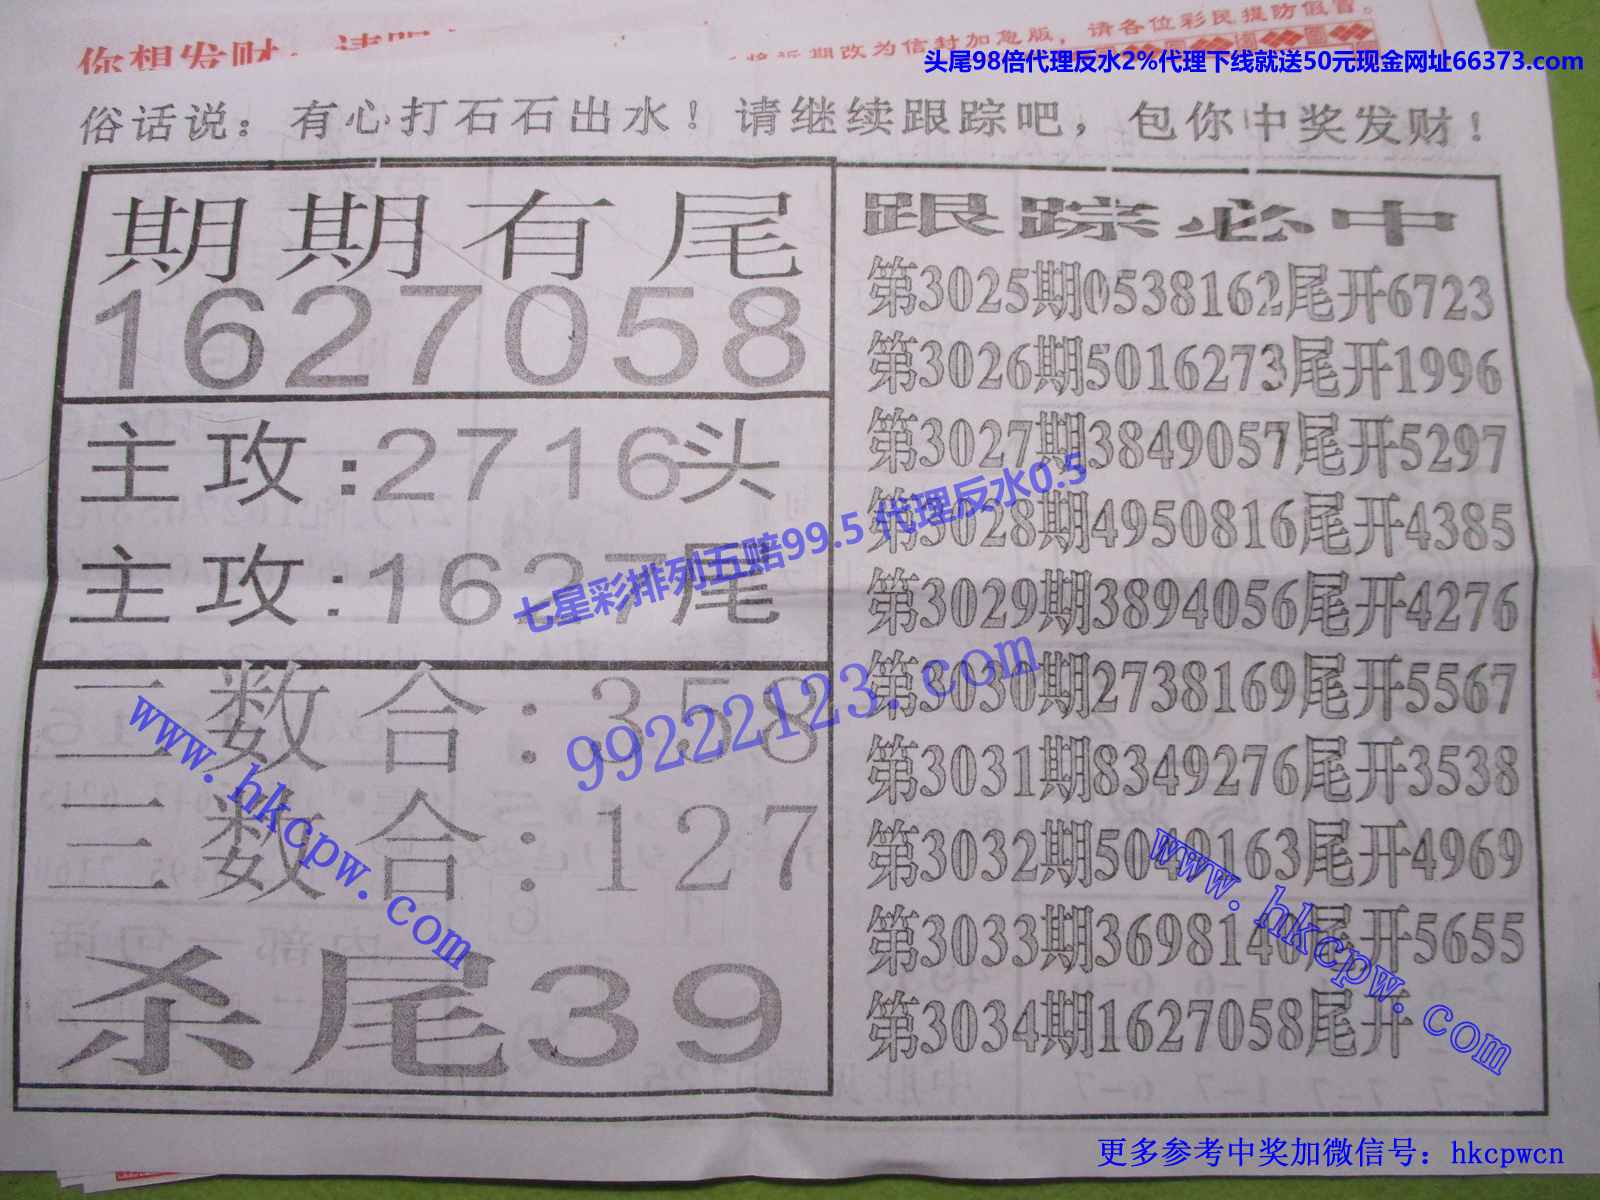 你想发财
近期改为信封加急版，请各位彩民提防假冒。
头尾98倍代理反水2%代理下线就送50元现金网址66373.com
俗话说：有心打石石出水！请继续跟踪吧，包你中奖发财！
期期有尾
1627058
主攻:2716头
主攻:1627尾
二数合:358
三数合:127
杀尾39
跟踪必中
第3025期0538162尾开6723
第3026期5016273尾开1996
第3027期3849057尾开5297
第3028期4950816尾开4385
第3029期3894056尾开4276
第3030期2738169尾开5567
第3031期8349276尾开3538
第3032期5049163尾开4969
第3033期3698140尾开5655
第3034期1627058尾开
七星彩排列五赔99.5 代理反水0.5
99222123.com
www.hkcpw.com
www.hkcpw.com
更多参考中奖加微信号：hkcpwcn